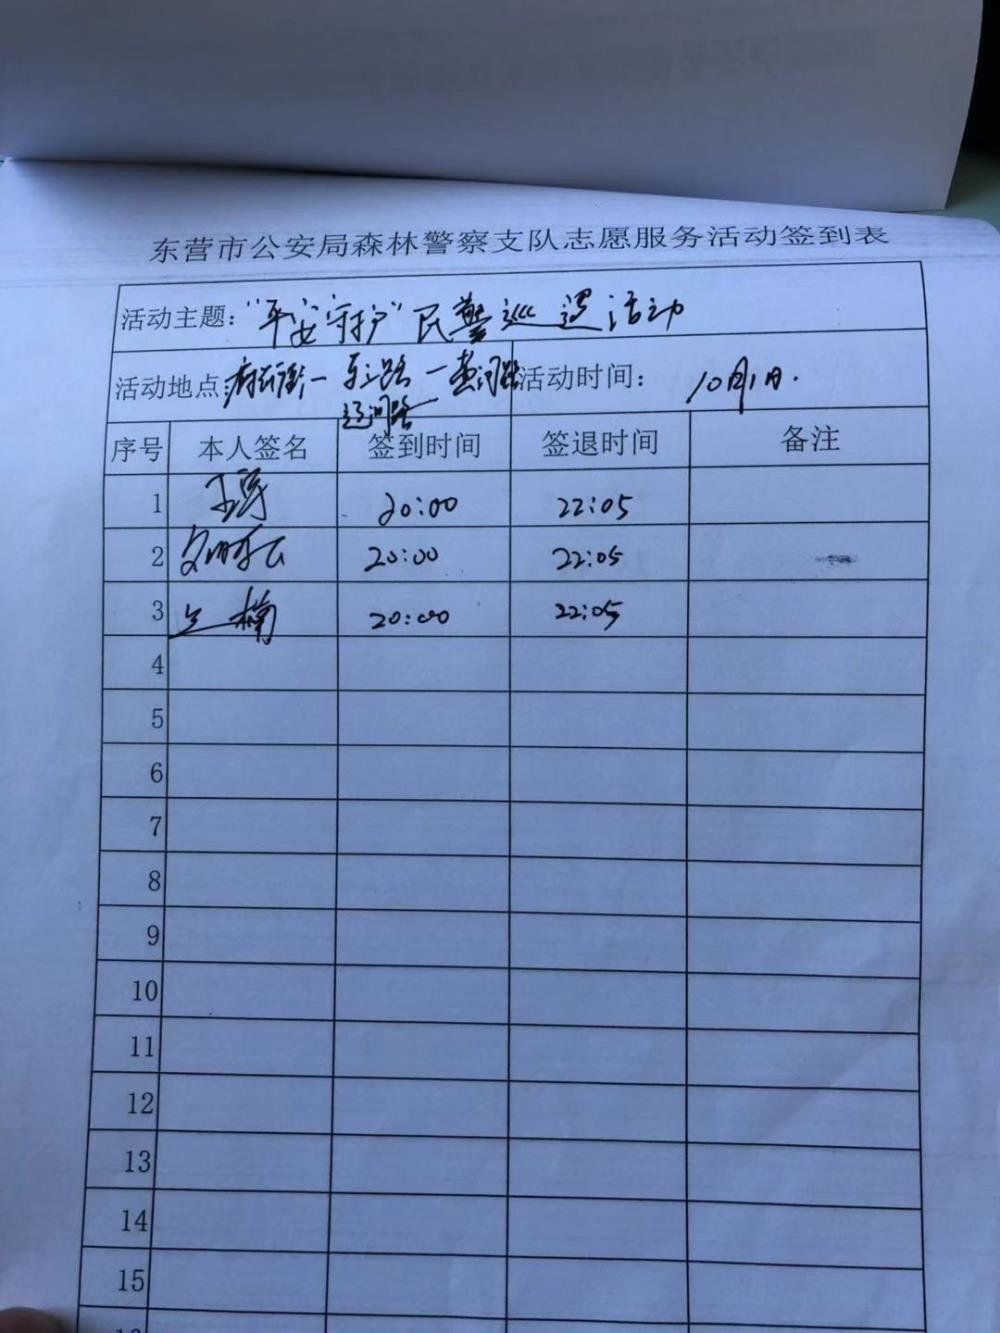 东营市公安局森林警察支队志愿服务活动签到表
活动主题："平安守护"民警巡逻活动
活动地点：府前街一东三路一黄河路 活动时间：10月1日.
辽河路
序号 本人签名 签到时间 签退时间 备注
1 20:00 22:05
2 20:00 22:05
3 楠 20:00 22:05
4
5
6
7
8
9
10
11
12
13
14
15